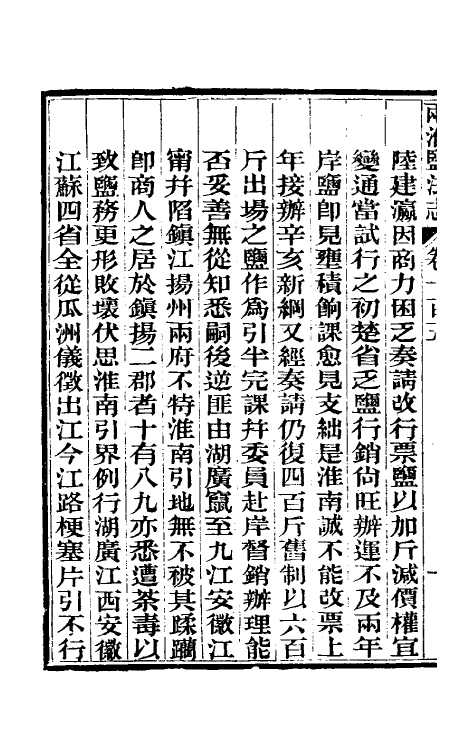 兩淮鹽法志 卷一百五
陸建瀛因商力困乏奏請改行票鹽以加斤減價權宜
變通當試行之初楚省乏鹽行銷尙旺辦運不及兩年
岸鹽卽見壅積餉課愈見支絀是淮南誠不能改票上
年接辦辛亥新綱又經奏請仍復四百斤舊制以六百
斤出場之鹽作爲引半完課幷委員赴岸督銷辦理能
否妥善無從知悉嗣後逆匪由湖廣竄至九江安徽江
甯幷陷鎭江揚州兩府不特淮南引地無不被其蹂躪
卽商人之居於鎭揚二郡者十有八九亦悉遭荼毒以
致鹽務更形敗壞伏思淮南引界例行湖廣江西安徽
江蘇四省全從瓜洲儀徵出江今江路梗塞片引不行